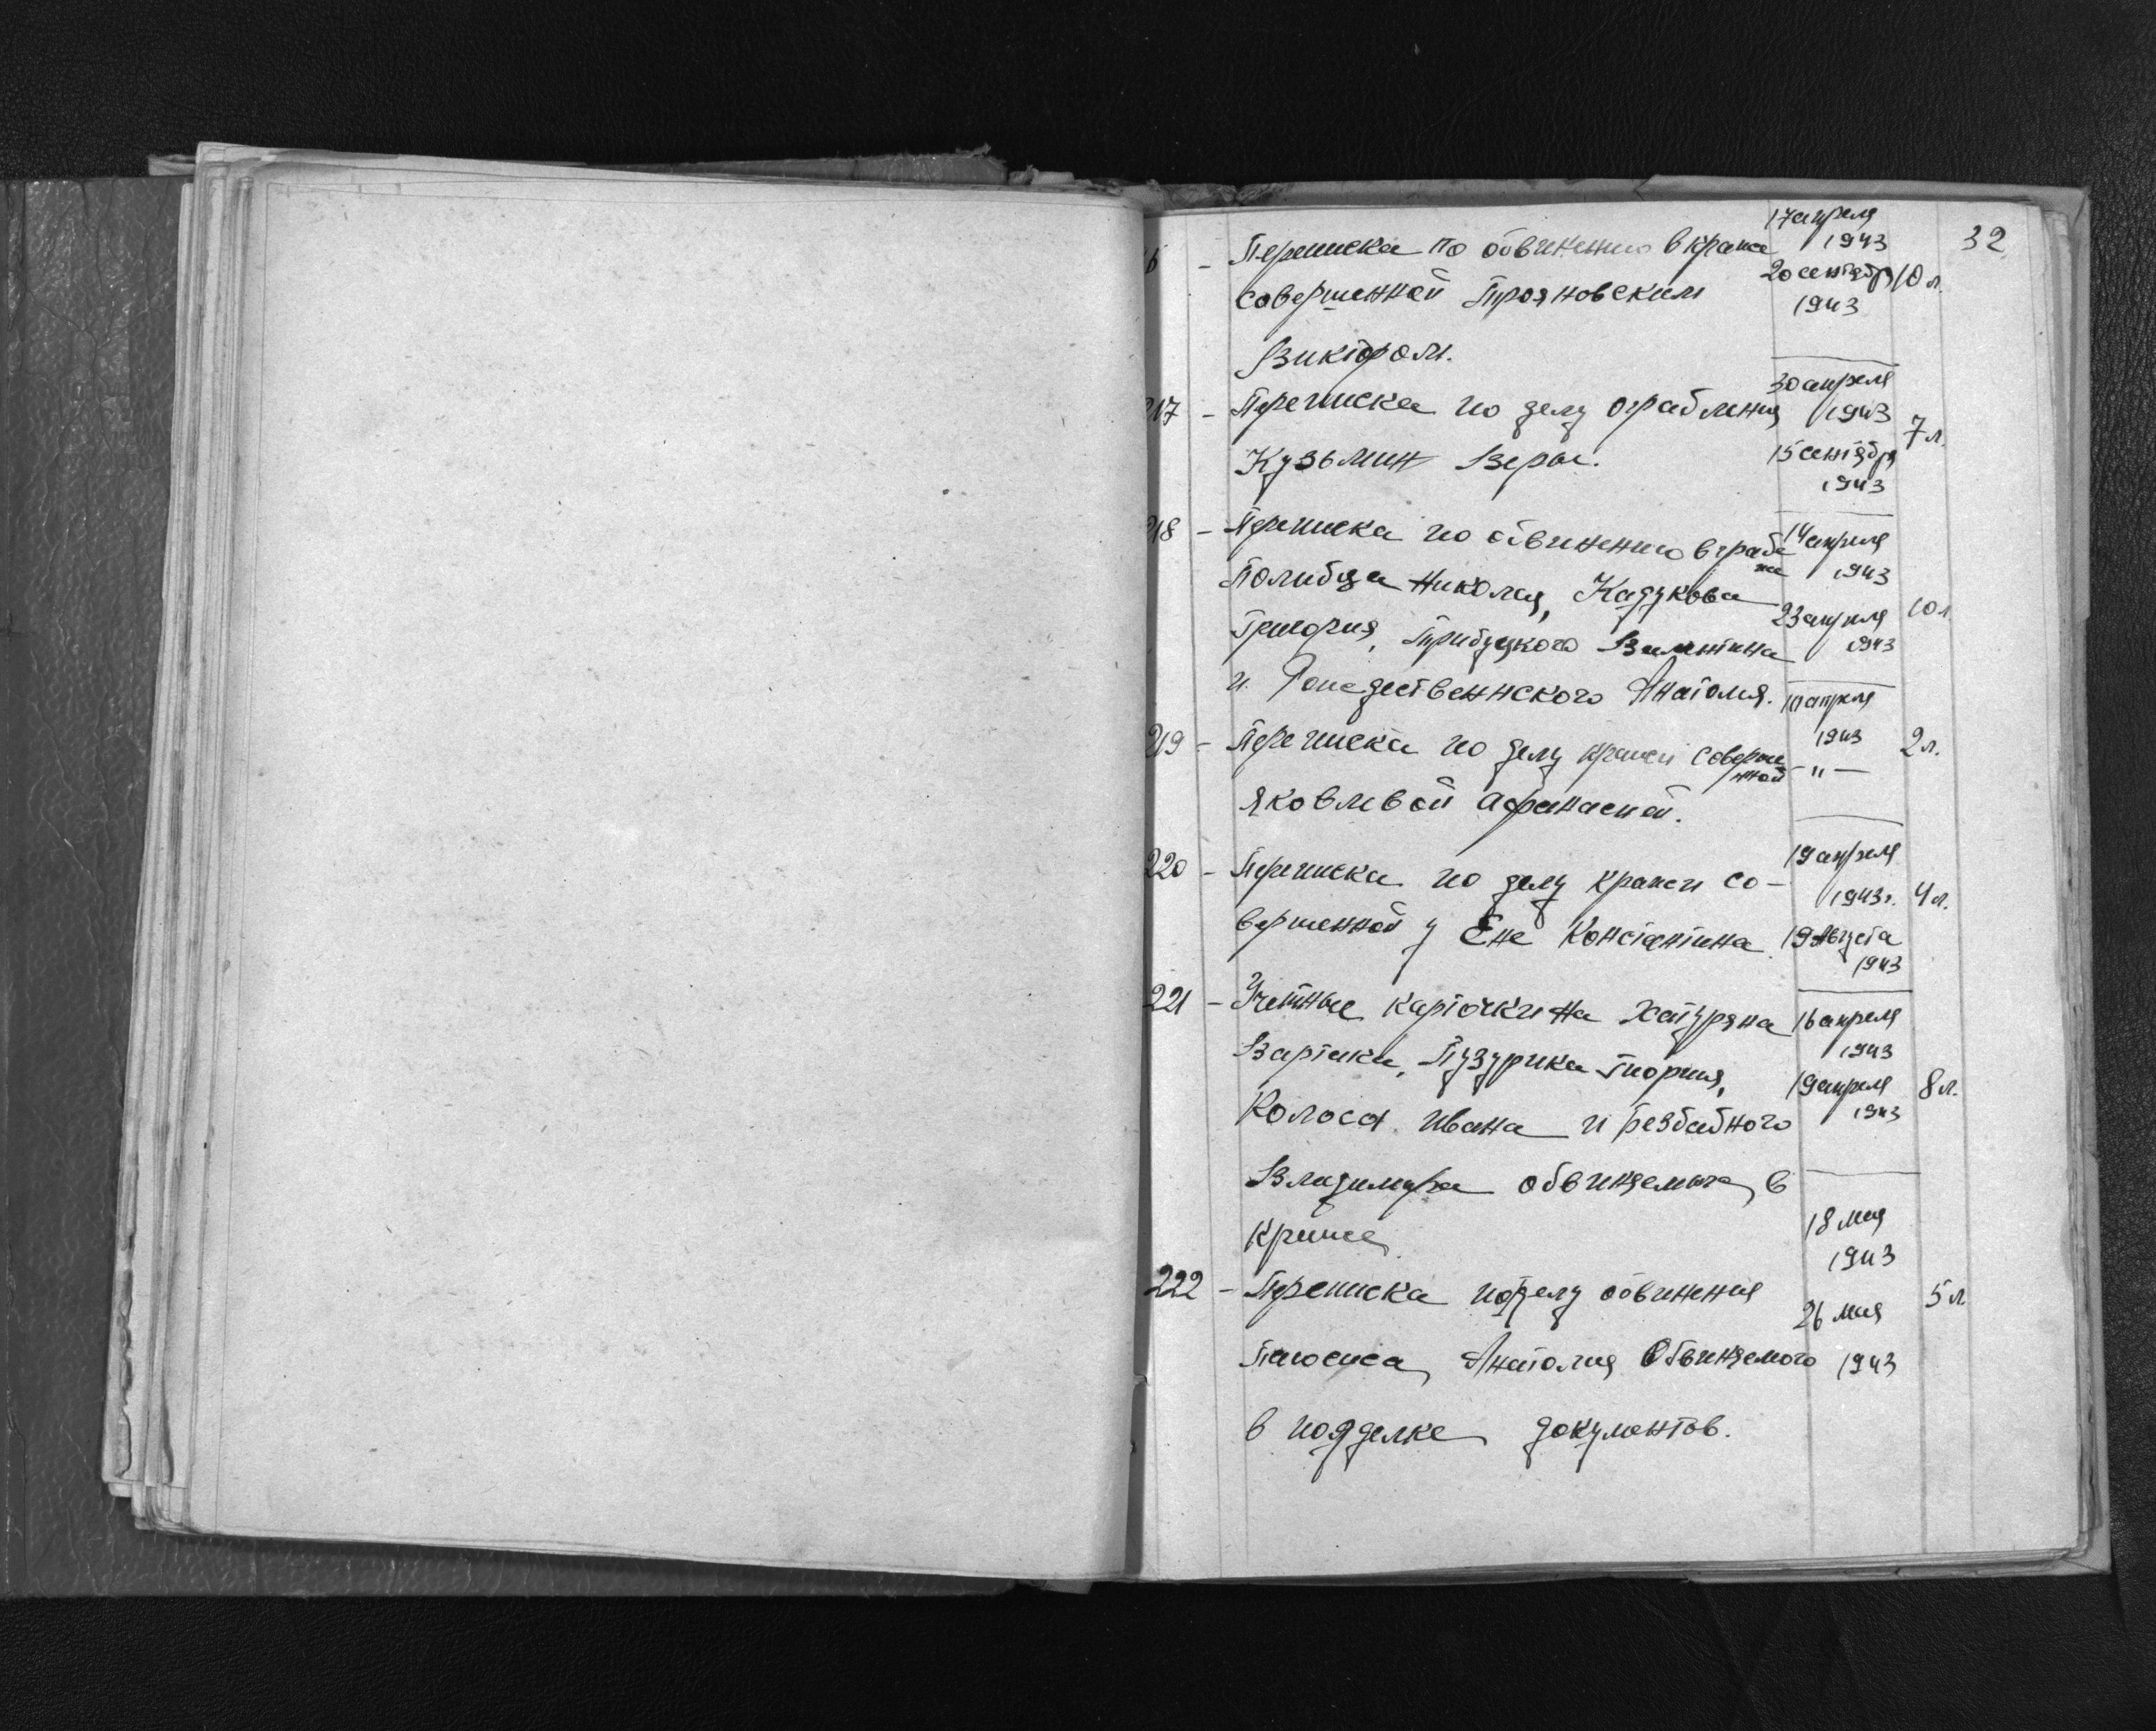 32
6 - Переписка по обвинению в краже 17 апреля 1943
совершенной Трояновским 20 сентября 1943 10 л.
Виктором.
217 - Переписка по делу ограбления 30 апреля 1943
Кузьмин Веры. 15 сентября 1943 7 л.
218 - Переписка по обвинению в грабеже 14 апреля 1943
Полибца Николая, Кадукова
Григория, Трибуцкого Валентина 23 апреля 1943 10 л
и Рождественнского Анатолия.
219 - Переписка по делу кражи совершенной 10 апреля 1943 2 л.
Яковлевой Афанасией. - " -
220 - Переписка по делу кражи со- 19 апреля 1943 г. 4 л.
вершенной у Ене Константина. 19 Августа 1943
221 - Учетные карточки на Хатуряна 16 апреля 1943
Вартика, Пузурика Гиоргия,
Колоса Ивана и Безбабного 19 апреля 1943 8 л.
Владимира обвиняемых в
краже
222 - Переписка по делу обвинения 18 мая 1943
Анатолия Обвиняемого 26 мая 1943 5 л
в подделке документов.